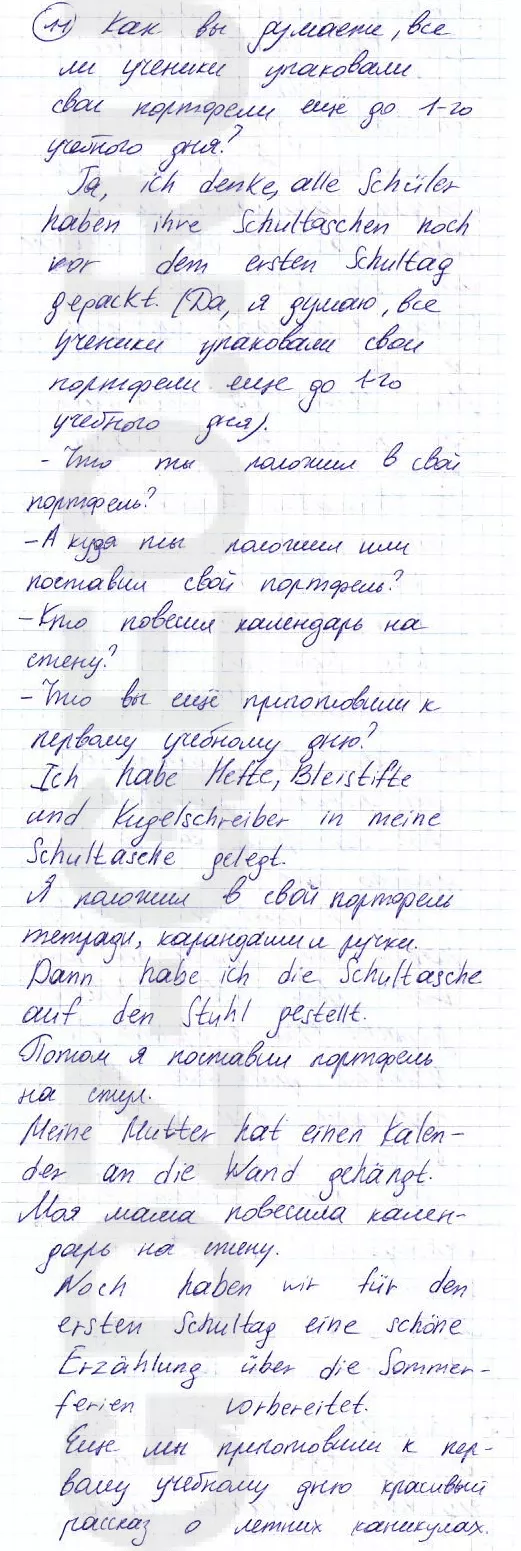 11 Как вы думаете, все
ли ученики упаковали
свои портфели еще до 1-го
учебного дня?
Ja, ich denke, alle Schüler
haben ihre Schultaschen noch
vor dem ersten Schultag
gepackt. (Да, я думаю, все
ученики упаковали свои
портфели еще до 1-го
учебного дня).
- Что ты положил в свой
портфель?
- А куда ты положил или
поставил свой портфель?
- Кто повесил календарь на
стену?
- Что вы ещё приготовили к
первому учебному дню?
Ich habe Hefte, Bleistifte
und Kugelschreiber in meine
Schultasche gelegt.
Я положил в свой портфель
тетради, карандаши и ручки.
Dann habe ich die Schultasche
auf den Stuhl gestellt.
Потом я поставил портфель
на стул.
Meine Mutter hat einen Kalen-
der an die Wand gehängt.
Моя мама повесила кален-
дарь на стену.
Noch haben wir für den
ersten Schultag eine schöne
Erzählung über die Sommer-
ferien vorbereitet.
Еще мы приготовили к пер-
вому учебному дню красивый
рассказ о летних каникулах.